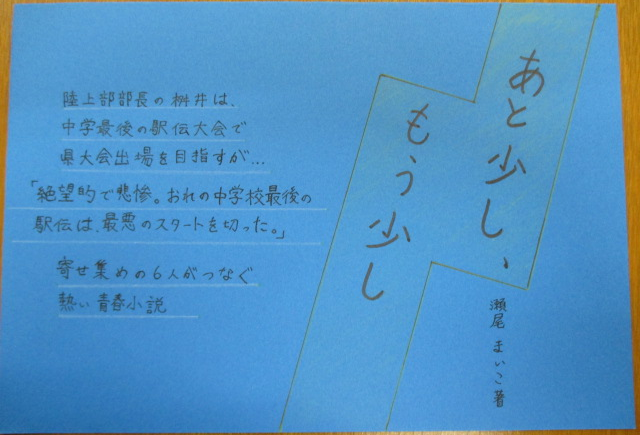 あと少し、
もう少し
瀬尾 まいこ著
陸上部部長の桝井は、
中学最後の駅伝大会で
県大会出場を目指すが…
「絶望的で悲惨。おれの中学校最後の
駅伝は、最悪のスタートを切った。」
寄せ集めの6人がつなぐ
熱い青春小説